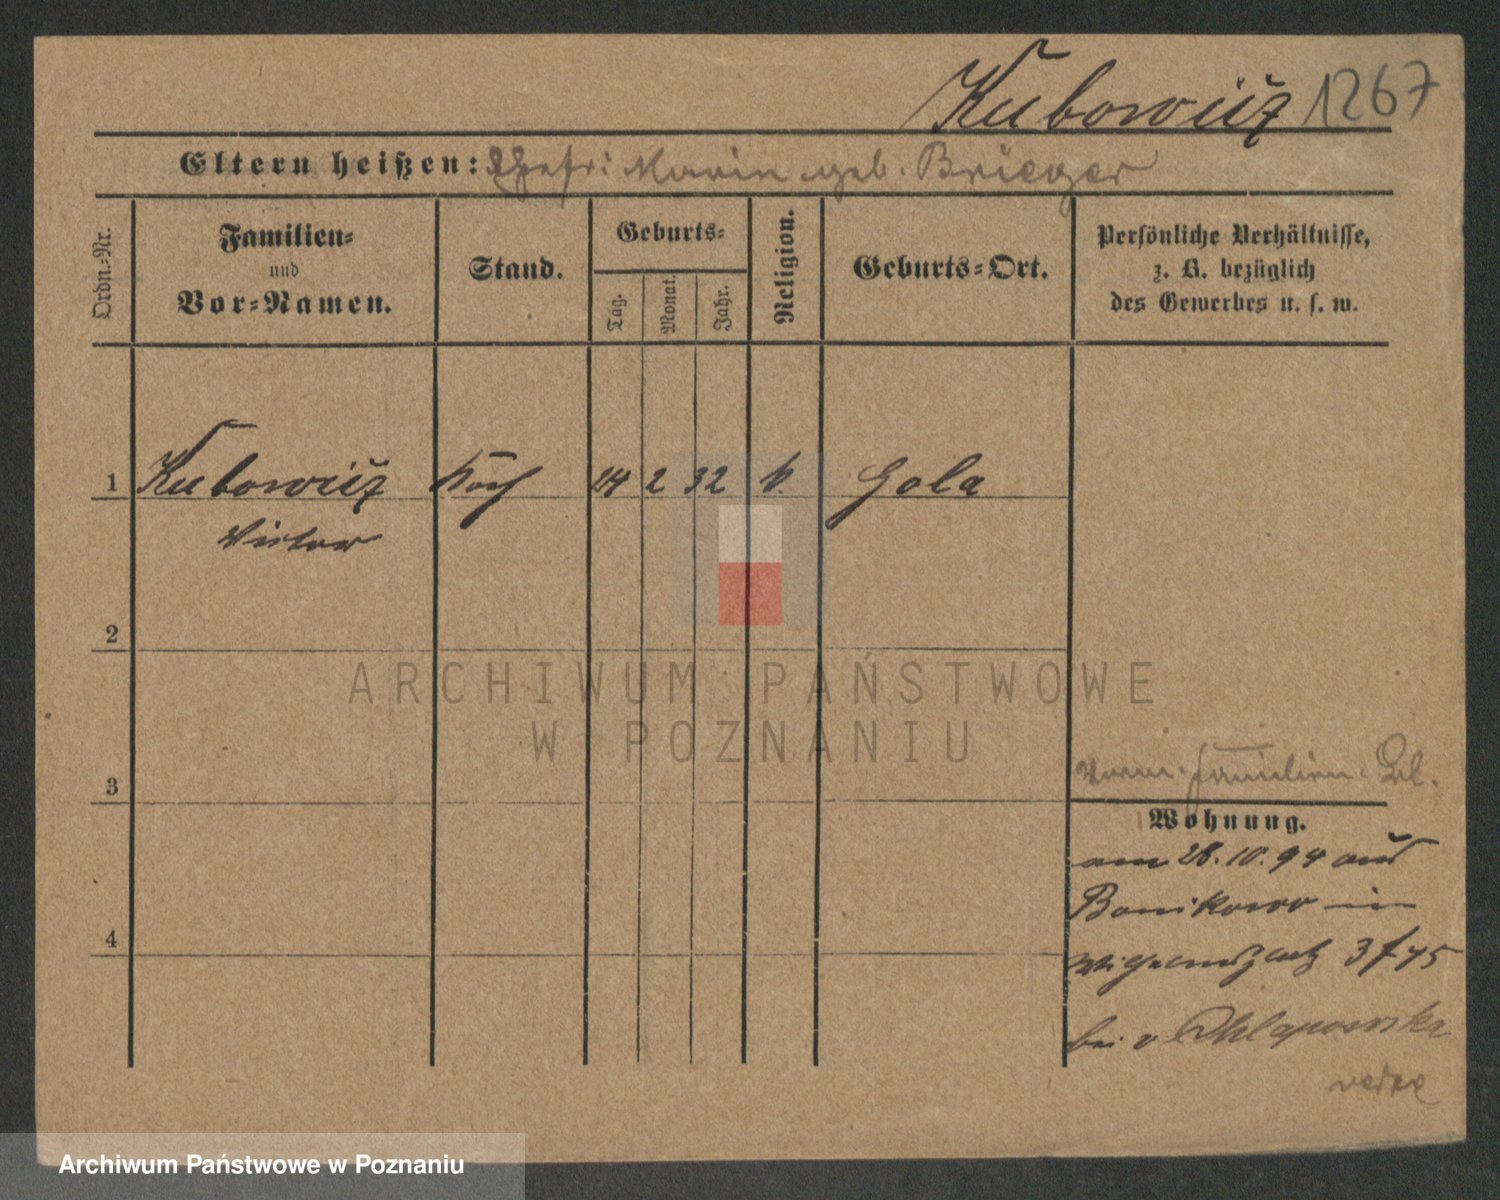 Kubowicz 1267
Eltern heißen: Ehefr: Marie geb. Brieger
Ordn.-Nr.
Familien-
und
Vor-Namen.
Stand.
Geburts-
Tag.
Monat.
Jahr.
Religion.
Geburts-Ort.
Persönliche Verhältnisse,
z. B. bezüglich
des Gewerbes u. s. w.
1 Kubowicz Koch 14 2 32 k. Gola
Victor
2
ARCHIWUM PAŃSTWOWE
W POZNANIU
Familien-Bl.
3
Wohnung.
am 28.10.94 aus
Bonikowo in
4
Wilhelmsplatz 3 f 45
bei v Chlapowska
Archiwum Państwowe w Poznaniu